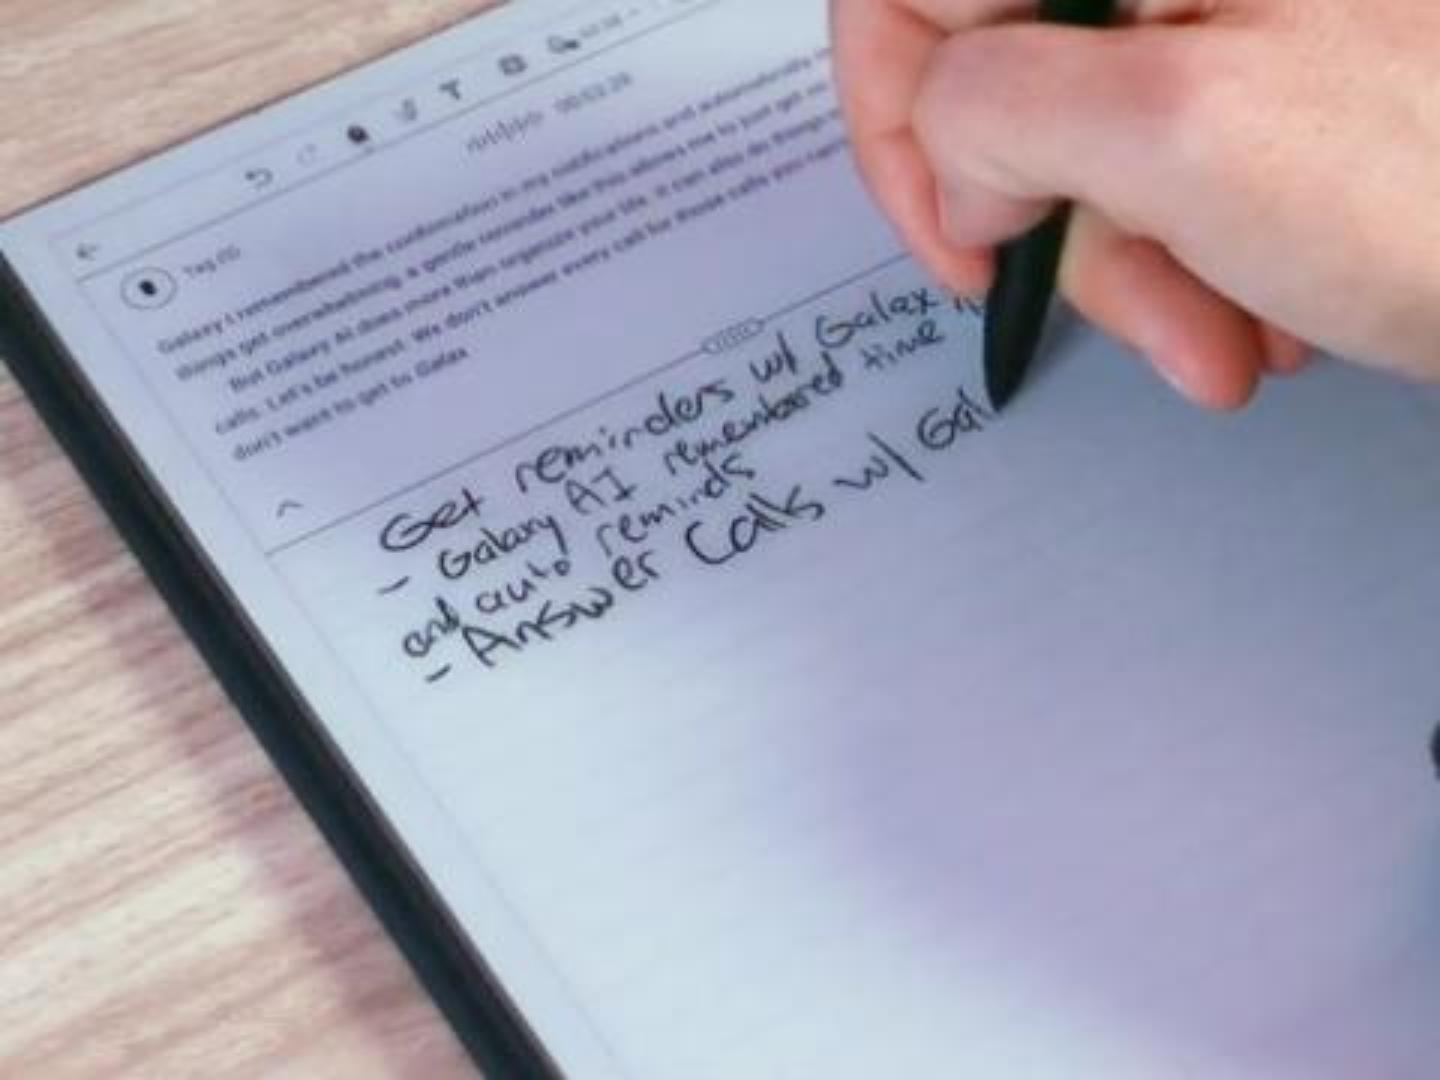 00:02:28
Tag (1)
Galaxy I remembered the confirmation in my notifications and automatically
things get overwhelming, a gentle reminder like this allows me to just get on
But Galaxy AI does more than organize your life. It can also do things
calls. Let's be honest. We don't answer every call for those calls you
don't want to get to Galax
Get reminders w/ Galax
- Galaxy AI remembered time
and auto reminds
- Answer Calls w/ Gal